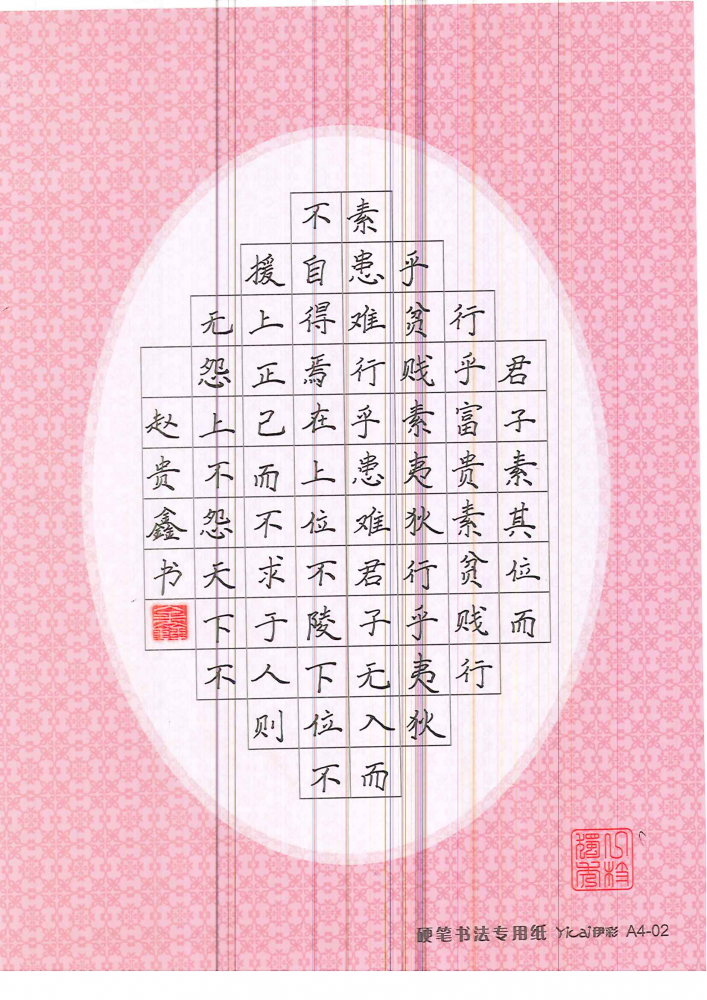 君子素其位而
行乎富贵素贫贱行
乎贫贱素夷狄行乎夷狄
素患难行乎患难君子无入而
不自得焉在上位不陵下位不
援上正己而不求于人则
无怨上不怨天下不
赵贵鑫书
硬笔书法专用纸 Yicai伊彩 A4-02